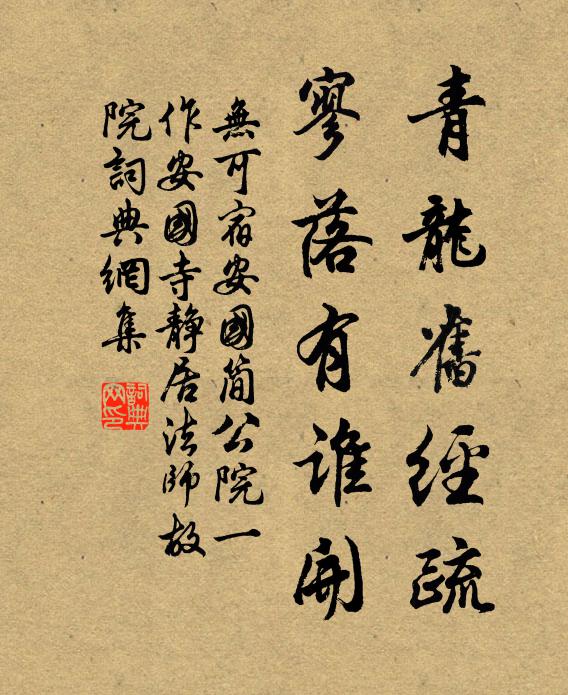 青龍舊經疏
寥落有誰開
無可宿安國簡公院一
作安國寺靜居法師故
院詞典網集
詞典
网印